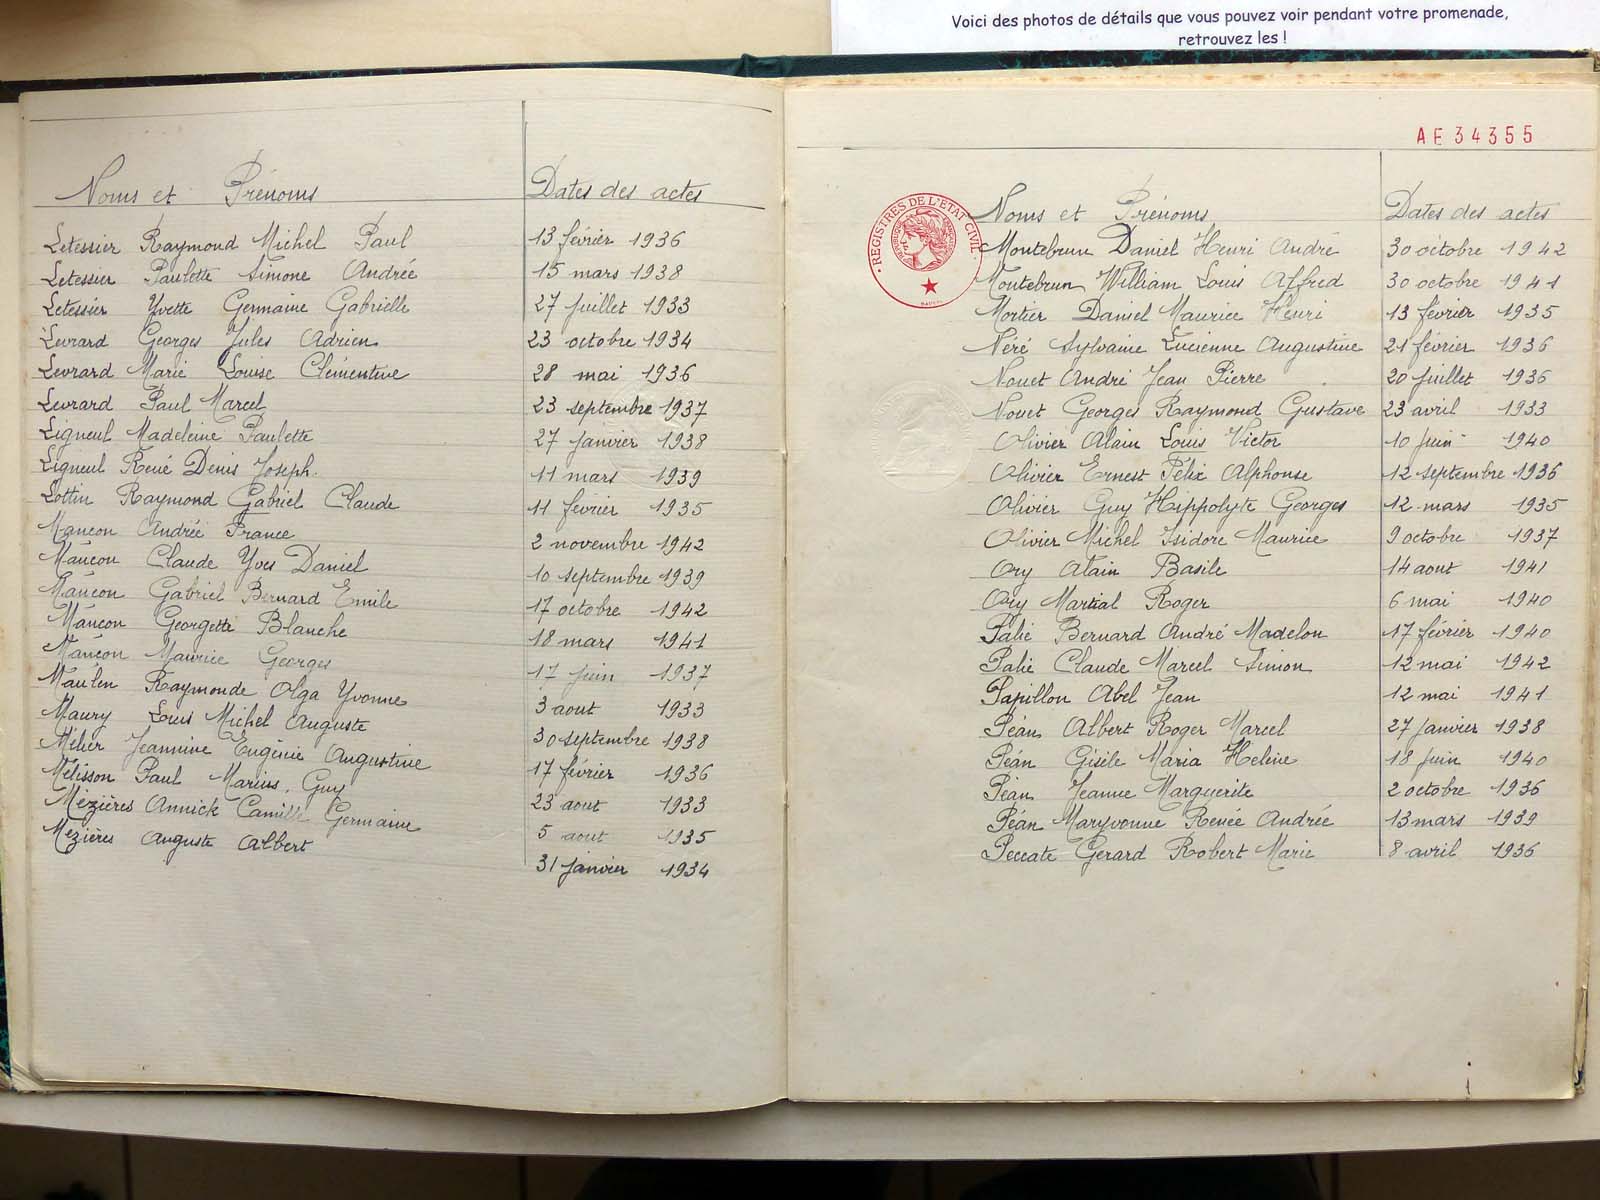 Voici des photos de détails que vous pouvez voir pendant votre promenade,
retrouvez les !
Noms et Prénoms Dates des actes
Letessier Raymond Michel Paul 13 février 1936
Letessier Paulette Simone Andrée 15 mars 1938
Letessier Yvette Germaine Gabrielle 27 juillet 1933
Levrard Georges Jules Adrien 23 octobre 1934
Levrard Marie Louise Clémentine 28 mai 1936
Levrard Paul Marcel 23 septembre 1937
Ligneul Madeleine Paulette 27 janvier 1938
Ligneul René Denis Joseph. 11 mars 1939
Lottin Raymond Gabriel Claude 11 février 1935
Mançon Andrée France 2 novembre 1942
Mançon Claude Yves Daniel 10 septembre 1939
Mançon Gabriel Bernard Emile 17 octobre 1942
Mançon Georgette Blanche 18 mars 1941
Mançon Maurice Georges 17 juin 1937
Raymonde Olga Yvonne 3 aout 1933
Maury Louis Michel Auguste 30 septembre 1938
Mélier Jeannine Eugénie Augustine 17 février 1936
Mélisson Paul Marius, Guy 23 aout 1933
Mézières Annick Camille Germaine 5 aout 1935
Mézières Auguste Albert 31 janvier 1934
AE 34355
REGISTRES DE L'ÉTAT CIVIL
Noms et Prénoms Dates des actes
Montebrun Daniel Henri André 30 octobre 1942
Montebrun William Louis Alfred 30 octobre 1941
Mortier Daniel Maurice Henri 13 février 1935
Néré Sylvaine Lucienne Augustine 21 février 1936
Nouet André Jean Pierre 20 juillet 1936
Nouet Georges Raymond Gustave 23 avril 1933
Olivier Alain Louis Victor 10 juin 1940
Olivier Ernest Félix Alphonse 12 septembre 1936
Olivier Guy Hippolyte Georges 12 mars 1935
Olivier Michel Isidore Maurice 9 octobre 1937
Ory Alain Basile 14 aout 1941
Ory Martial Roger 6 mai 1940
Palie Bernard André Madelon 17 février 1940
Palie Claude Marcel Simon 12 mai 1942
Papillon Abel Jean 12 mai 1941
Péan Albert Roger Marcel 27 janvier 1938
Péan Gisèle Maria Helène 18 juin 1940
Péan Jeanne Marguerite 2 octobre 1936
Péan Maryvonne Renée Andrée 13 mars 1939
Peccate Gerard Robert Marie 8 avril 1936